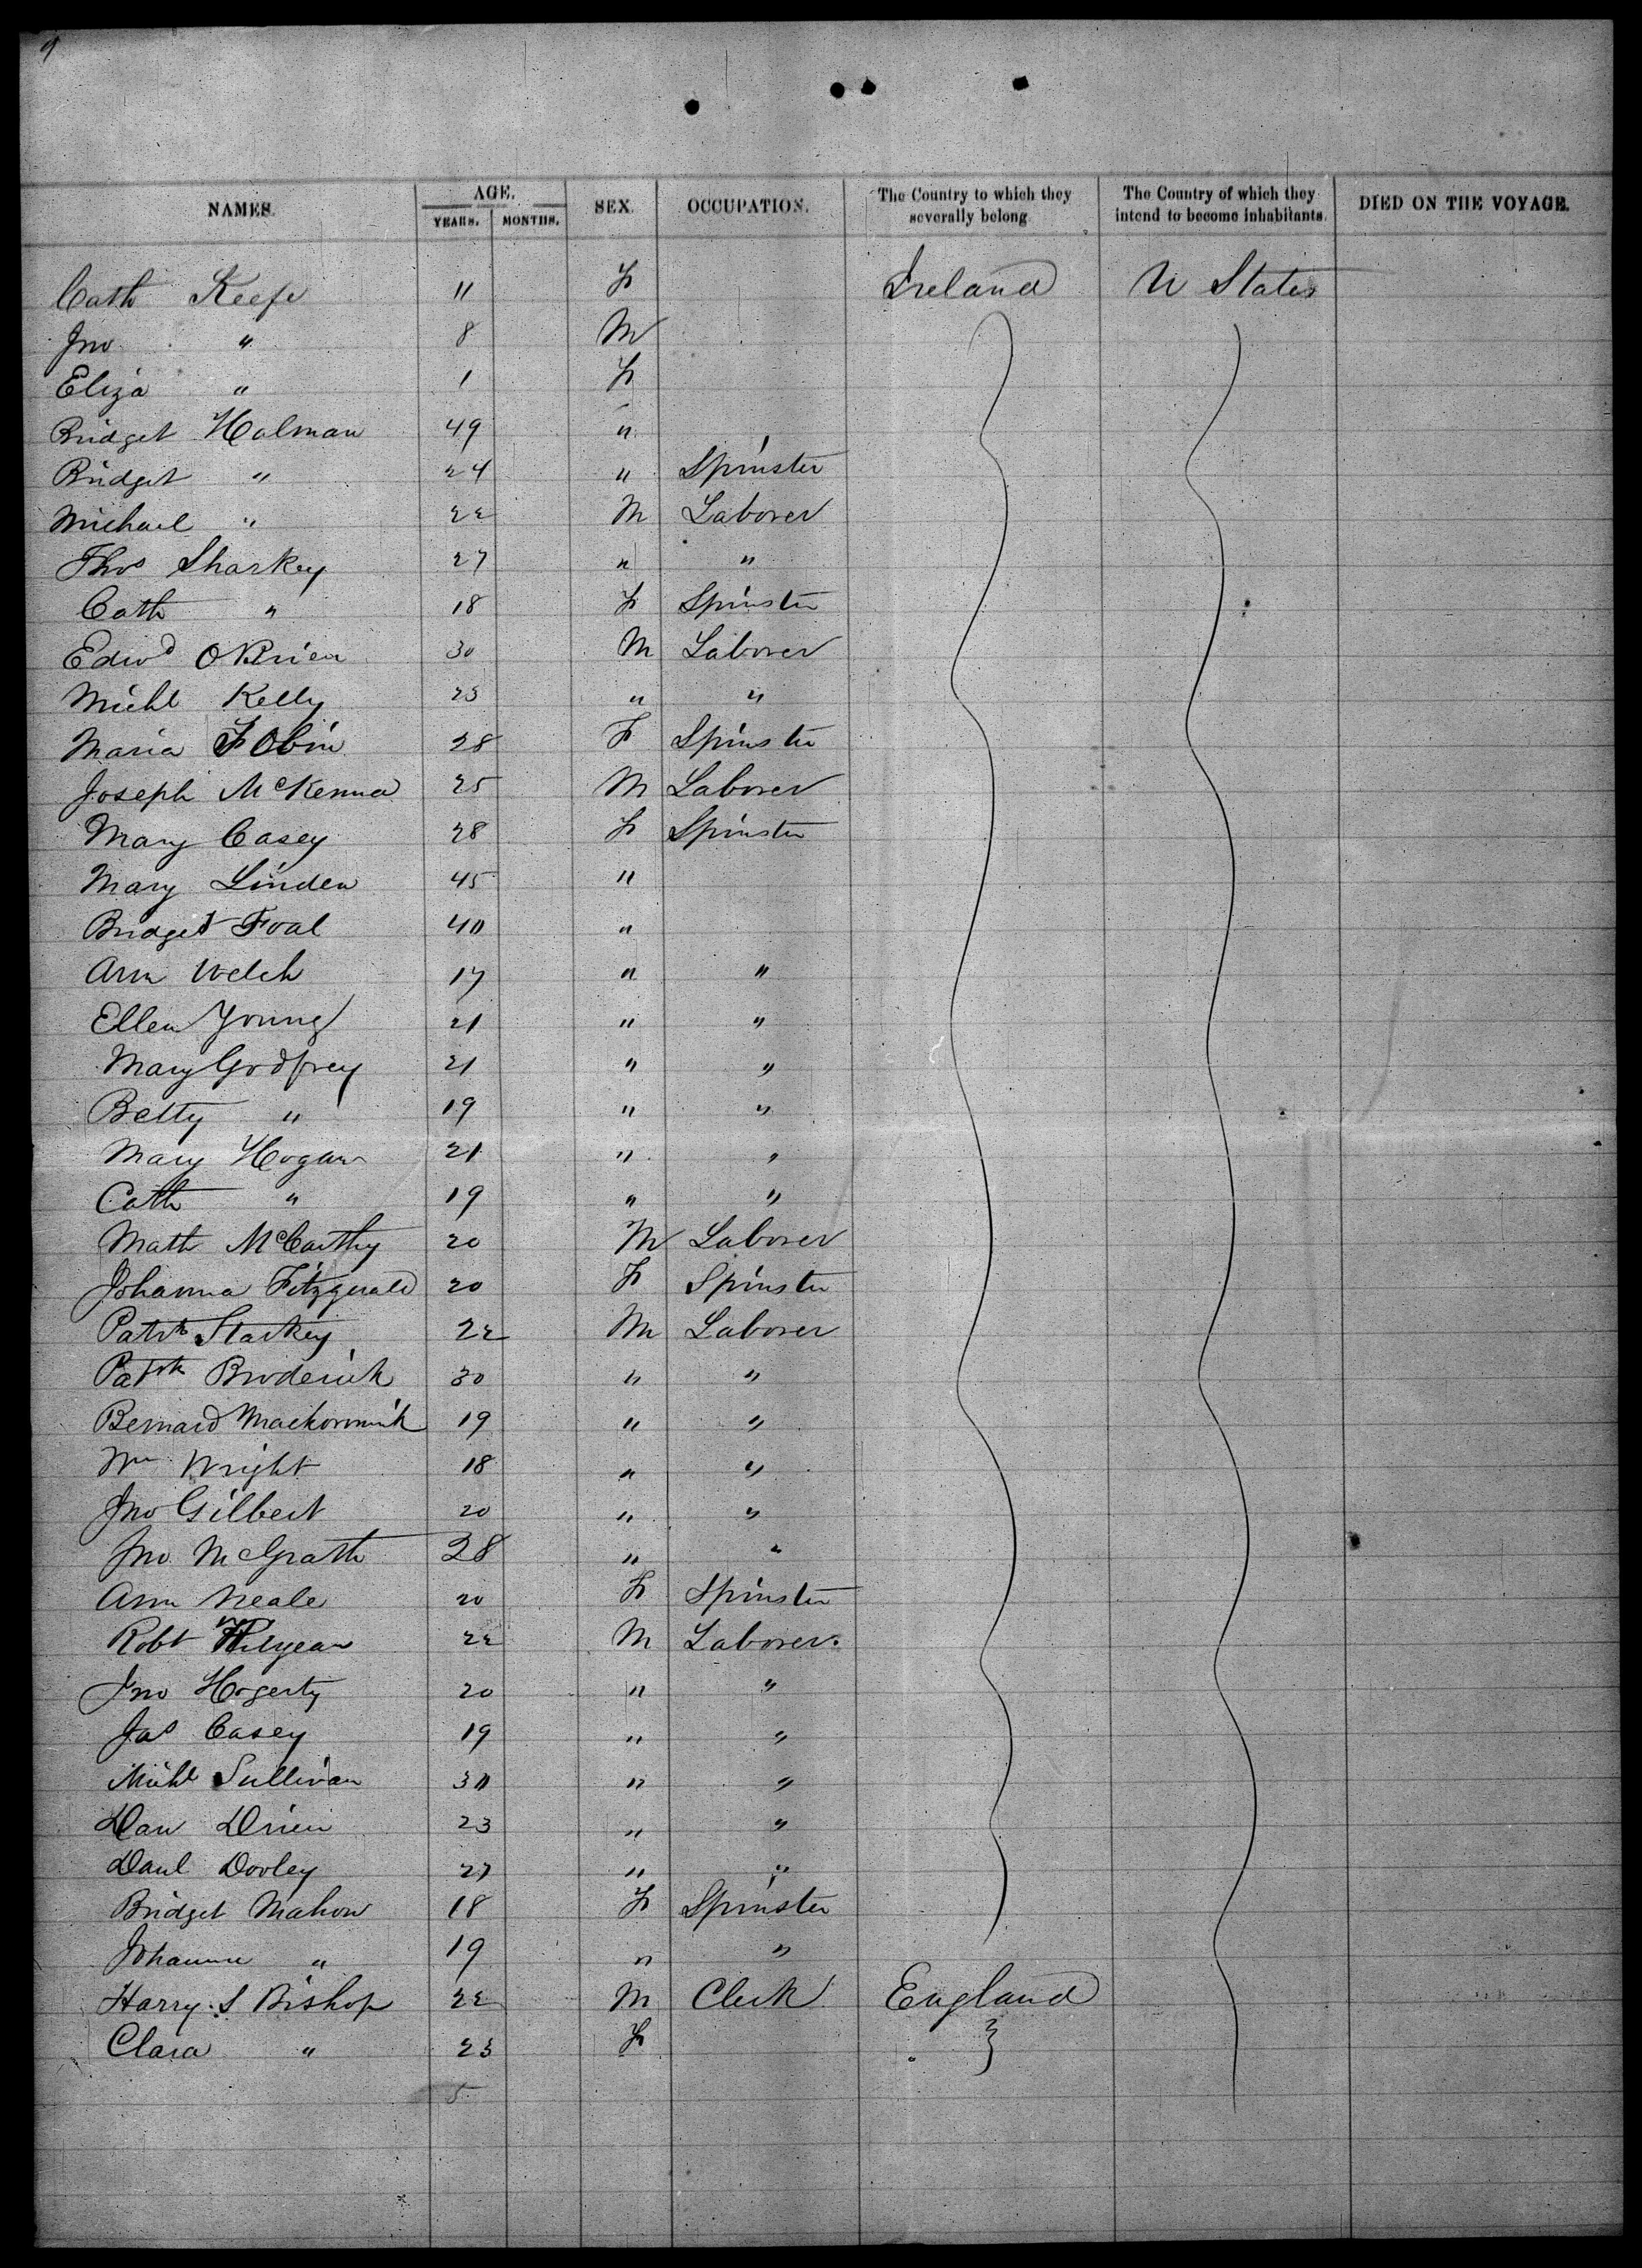 9
NAMES. AGE. YEARS. MONTHS. SEX. OCCUPATION. The Country to which they severally belong The Country of which they intend to become inhabitants. DIED ON THE VOYAGE.
Cath Keefe 11 F Ireland U States
Jno " 8 M
Eliza " 1 F
Bridget Holman 49 "
Bridget " 24 " Spinster
Michael " 22 M Laborer
Thos Sharkey 27 " "
Cath " 18 F Spinster
Edwd OBrien 30 M Laborer
Michl Kelly 23 " "
Maria Tobin 28 F Spinster
Joseph McKenna 25 M Laborer
Mary Casey 28 F Spinster
Mary Linden 45 "
Bridget Foal 40 "
Ann Welch 17 " "
Ellen Young 21 " "
Mary Godfrey 21 " "
Betty " 19 " "
Mary Hogan 21 " "
Cath " 19 " "
Math McCarthy 20 M Laborer
Johanna Fitzgerald 20 F Spinster
Patrk Starkey 22 M Laborer
Patrk Broderick 30 " "
Bernard Mackormick 19 " "
Wm Wright 18 " "
Jno Gilbert 20 " "
Jno McGrath 28 " "
Ann Neale 20 F Spinster
Robt 22 M Laborer
Jno Hogerty 20 " "
Jas Casey 19 " "
Michl Sullivan 30 " "
Dan 23 " "
Danl Dooley 27 " "
Bridget Mahon 18 F Spinster
Johanna " 19 " "
Harry S Bishop 22 M Clerk England
Clara " 23 F
5